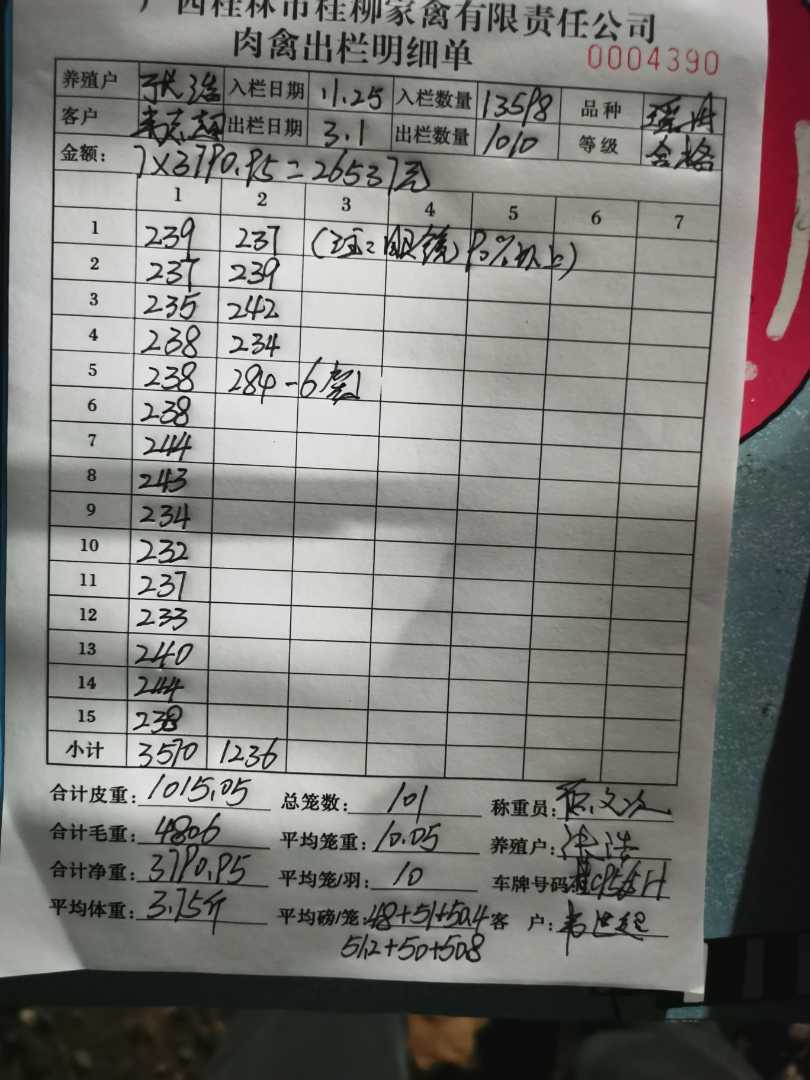 广西桂林市桂柳家禽有限责任公司
肉禽出栏明细单 0004390
养殖户 张浩 入栏日期 11.25 入栏数量 13598 品种 瑶鸡
客户 出栏日期 3.1 出栏数量 1010 等级 合格
金额: 7×3790.95=26537元
1 2 3 4 5 6 7
1 239 237 (注: 90%以上)
2 237 239
3 235 242
4 238 234
5 238 284-6
6 238
7 244
8 243
9 234
10 232
11 237
12 233
13 240
14 244
15 238
小计 3570 1236
合计皮重: 1015.05 总笼数: 101 称重员:
合计毛重: 4806 平均笼重: 10.05 养殖户: 张浩
合计净重: 3790.95 平均笼/羽: 10 车牌号码
平均体重: 3.75斤 平均磅/笼: 48+51+50.4 客 户:
51.2+50+50.8